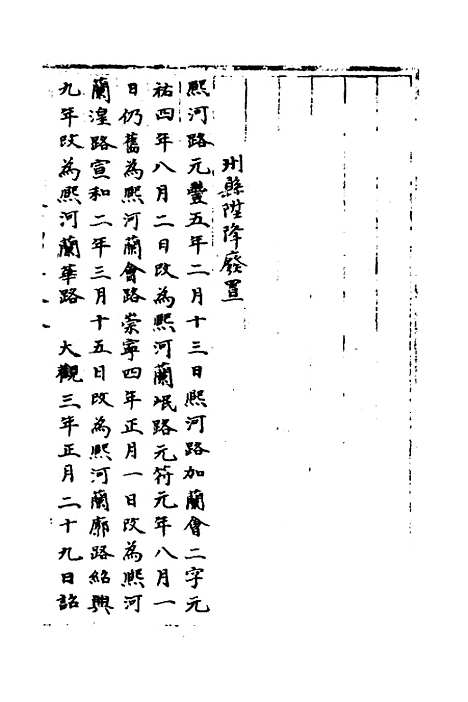 州縣陞降廢置
熙河路元豐五年二月十三日熙河路加蘭會二字元
祐四年八月二日改為熙河蘭岷路元符元年八月一
日仍舊為熙河蘭會路崇寧四年正月一日改為熙河
蘭湟路宣和二年三月十五日改為熙河蘭廓路紹興
九年改為熙河蘭鞏路　大觀三年正月二十九日詔